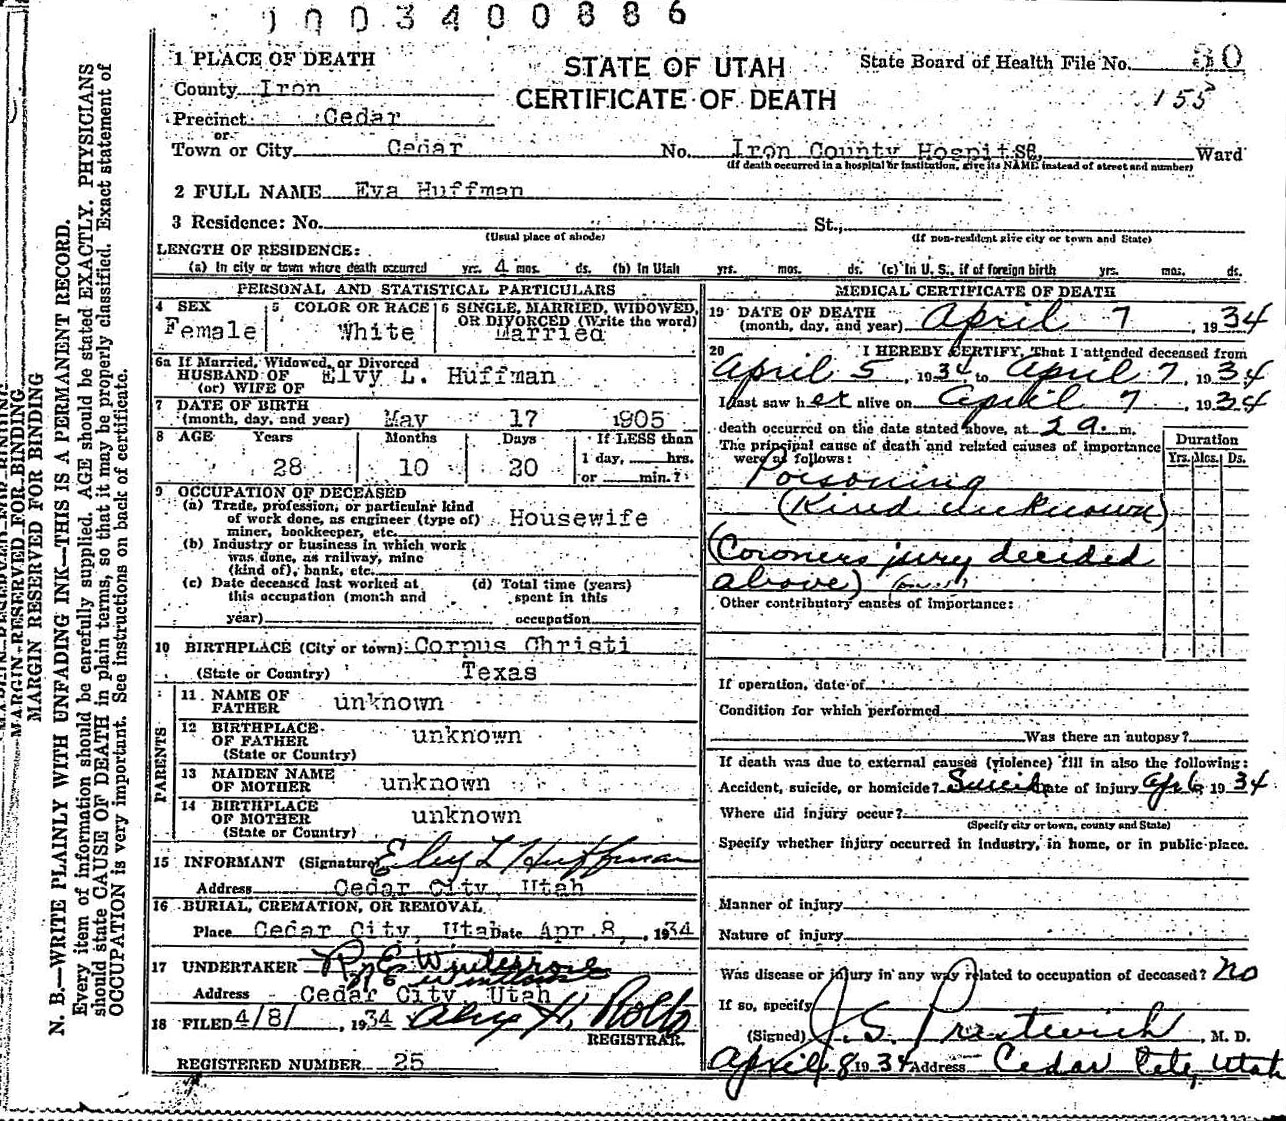 1003400886
1 PLACE OF DEATH
STATE OF UTAH
CERTIFICATE OF DEATH
State Board of Health File No. 30
155
County Iron
Precinct Cedar
or
Town or City Cedar No. Iron County Hospit St., Ward
(If death occurred in a hospital or institution, give its NAME instead of street and number)
2 FULL NAME Eva Huffman
3 Residence: No. St.,
(Usual place of abode) (If non-resident give city or town and State)
LENGTH OF RESIDENCE:
(a) In city or town where death occurred yrs. 4 mos. ds. (b) In Utah yrs. mos. ds. (c) In U. S., if of foreign birth yrs. mos. ds.
PERSONAL AND STATISTICAL PARTICULARS
4 SEX
Female
5 COLOR OR RACE
White
6 SINGLE, MARRIED, WIDOWED, OR DIVORCED (Write the word)
Married
6a If Married, Widowed, or Divorced
HUSBAND OF
(or) WIFE OF Elvy L. Huffman
7 DATE OF BIRTH
(month, day, and year) May 17 1905
8 AGE Years Months Days If LESS than
28 10 20 1 day, hrs.
or min.?
9 OCCUPATION OF DECEASED
(a) Trade, profession, or particular kind
of work done, as engineer (type of) Housewife
miner, bookkeeper, etc.
(b) Industry or business in which work
was done, as railway, mine
(kind of), bank, etc.
(c) Date deceased last worked at (d) Total time (years)
this occupation (month and spent in this
year) occupation
10 BIRTHPLACE (City or town) Corpus Christi
(State or Country) Texas
PARENTS
11 NAME OF
FATHER unknown
12 BIRTHPLACE
OF FATHER unknown
(State or Country)
13 MAIDEN NAME
OF MOTHER unknown
14 BIRTHPLACE
OF MOTHER unknown
(State or Country)
15 INFORMANT (Signature) Elvy L Huffman
Address Cedar City, Utah
16 BURIAL, CREMATION, OR REMOVAL
Place Cedar City, Utah Date Apr. 8, , 1934
17 UNDERTAKER
Address Cedar City Utah
18 FILED 4/8/ , 1934
REGISTRAR.
REGISTERED NUMBER 25
MEDICAL CERTIFICATE OF DEATH
19 DATE OF DEATH
(month, day, and year) April 7 , 1934
20 I HEREBY CERTIFY, That I attended deceased from
April 5 , 1934 to April 7 , 1934
I last saw her alive on April 7 , 1934
death occurred on the date stated above, at 2 a. m.
The principal cause of death and related causes of importance
were as follows:
Duration
Yrs. Mos. Ds.
Poisoning
(Kind unknown)
(Coroners jury decided
above)
Other contributory causes of importance:
If operation, date of
Condition for which performed
Was there an autopsy?
If death was due to external causes (violence) fill in also the following:
Accident, suicide, or homicide? Suicide Date of injury Apr 6, 1934
Where did injury occur?
(Specify city or town, county and State)
Specify whether injury occurred in industry, in home, or in public place.
Manner of injury
Nature of injury
Was disease or injury in any way related to occupation of deceased? No
If so, specify
(Signed) J. S. Prestwich , M. D.
April 8 1934 Address Cedar City, Utah
MARGIN RESERVED FOR BINDING
MARGIN RESERVED FOR BINDING
N. B.—WRITE PLAINLY WITH UNFADING INK—THIS IS A PERMANENT RECORD.
Every item of information should be carefully supplied. AGE should be stated EXACTLY. PHYSICIANS
should state CAUSE OF DEATH in plain terms, so that it may be properly classified. Exact statement of
OCCUPATION is very important. See instructions on back of certificate.